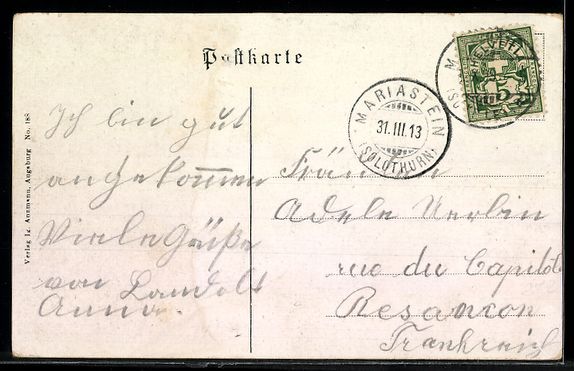 Postkarte
HELVETIA
MARIASTEIN
31.III.13
(SOLOTHURN)
Ich bin gut
angekommen
Viele Grüße
von Landolt
Anna.
Fräulein
Adele Uerlin
rue du Capitole
Besancon
Frankreich
Verlag Ig. Anzmann, Augsburg No. 188